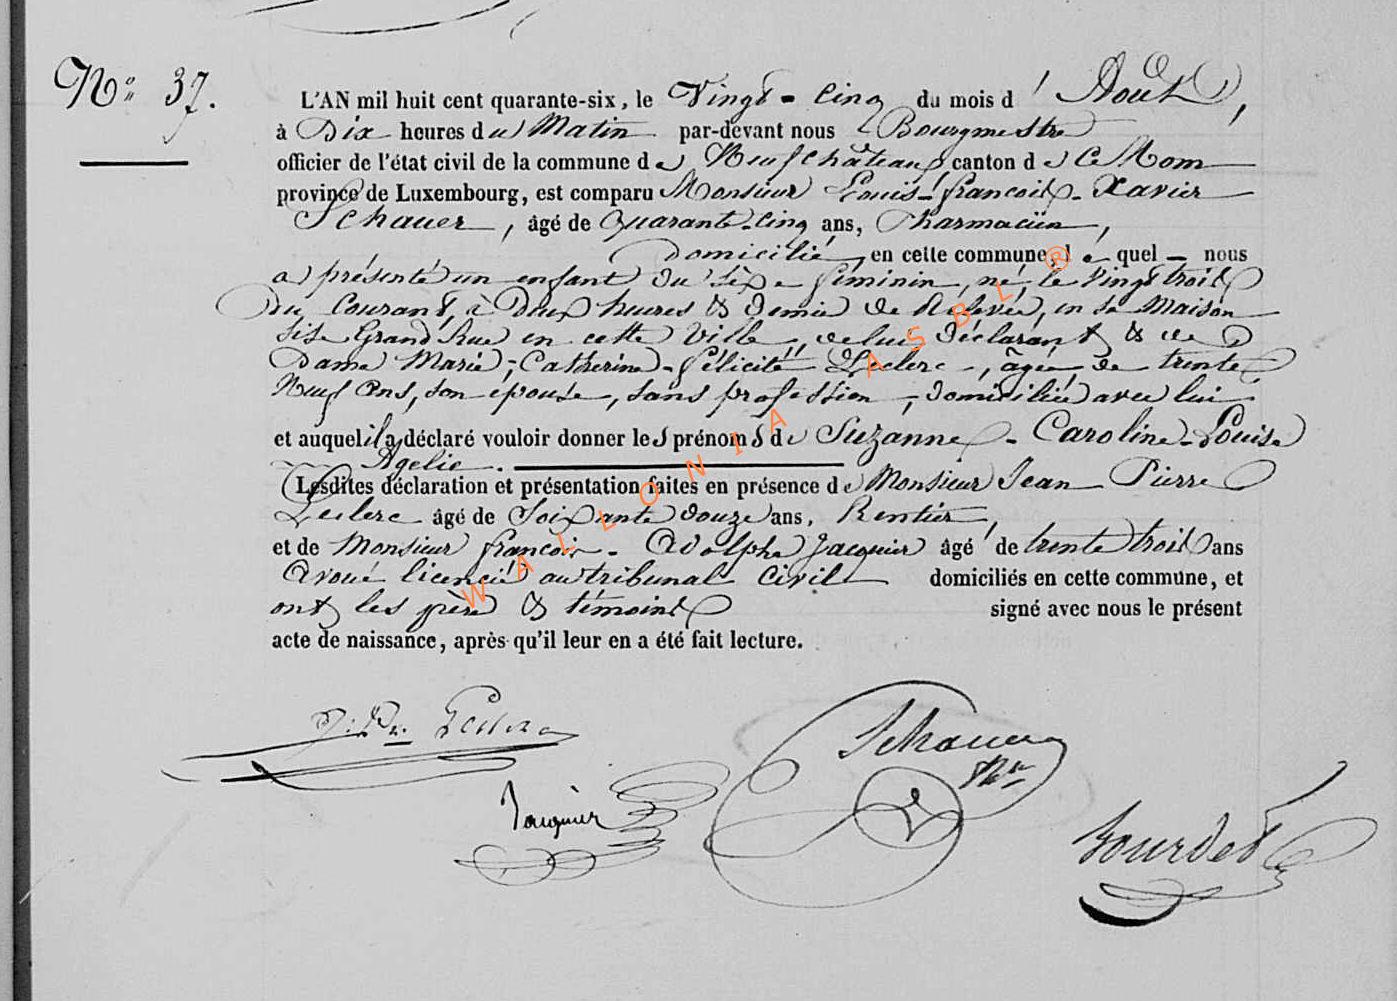 N° 37.
L'AN mil huit cent quarante-six, le Vingt-Cinq du mois d'Août,
à Dix heures du Matin par-devant nous Bourgmestre
officier de l'état civil de la commune de Neufchâteau, canton de Ce Nom
province de Luxembourg, est comparu Monsieur Louis-françois-Xavier
Schauer, âgé de Quarante-Cinq ans, Pharmacien,
domicilié en cette commune, lequel nous
a présenté un enfant du sèxe féminin, né le Vingt trois
du Courant, à Deux heures & demie de Relevée, en sa Maison
sise Grand Rue en cette Ville, de lui Déclarant & de
Dame Marie-Catherine-Félicité Leclerc, âgée de trente
Neuf Ans, son épouse, sans profession, domiciliée avec lui
et auquel il a déclaré vouloir donner les prénoms de Suzanne-Caroline-Louise
Agelie.
Lesdites déclaration et présentation faites en présence de Monsieur Jean Pierre
Leclerc âgé de Soixante douze ans, Rentier,
et de Monsieur françois-Adolphe Jacquier âgé de trente trois ans
Avoué licencié au tribunal Civil domiciliés en cette commune, et
ont les père & témoins signé avec nous le présent
acte de naissance, après qu'il leur en a été fait lecture.
J. Pre. Leclerc
Schauer
Phn
Jacquier
Bourdet
WALLONIA ASBL ®